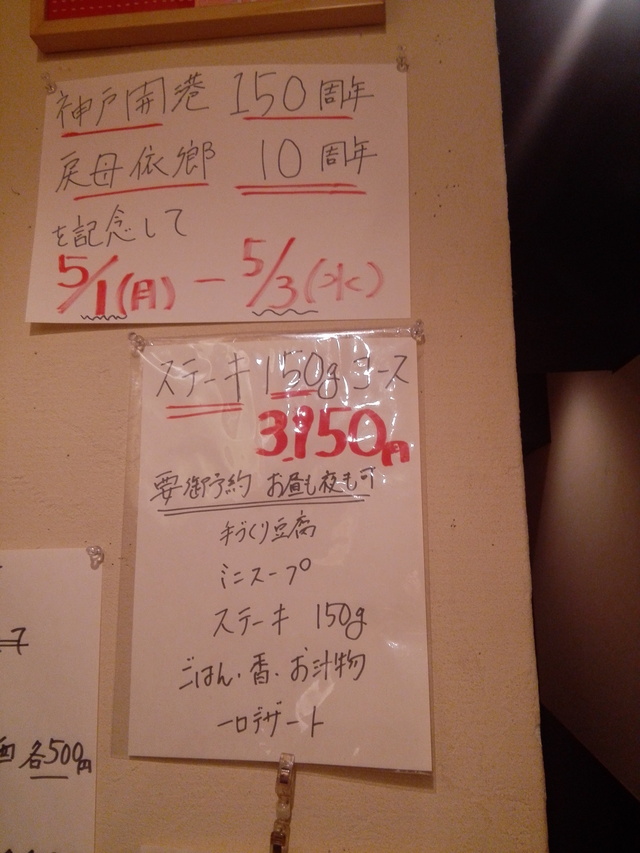 神戸開港 150周年
戻母依郷 10周年
を記念して
5/1(月) - 5/3(水)
ステーキ 150g コース
3,150円
要御予約 お昼も夜も可
手づくり豆腐
ミニスープ
ステーキ 150g
ごはん・香・お汁物
一口デザート
各500円